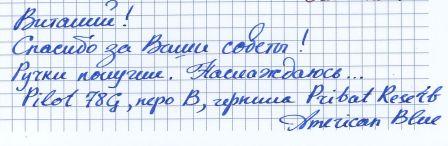 Виталий!
Спасибо за Ваши советы!
Ручки получил. Наслаждаюсь...
Pilot 78G, перо B, чернила Privat Reserv
American Blue